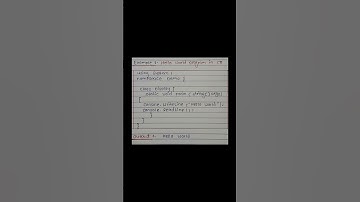 Example 1: Hello World Program in C#
using System;
namespace Demo {
class Display {
public void main (string[] args)
{
Console.WriteLine ("Hello World");
Console.ReadLine ();
}
}
}
Output: Hello World